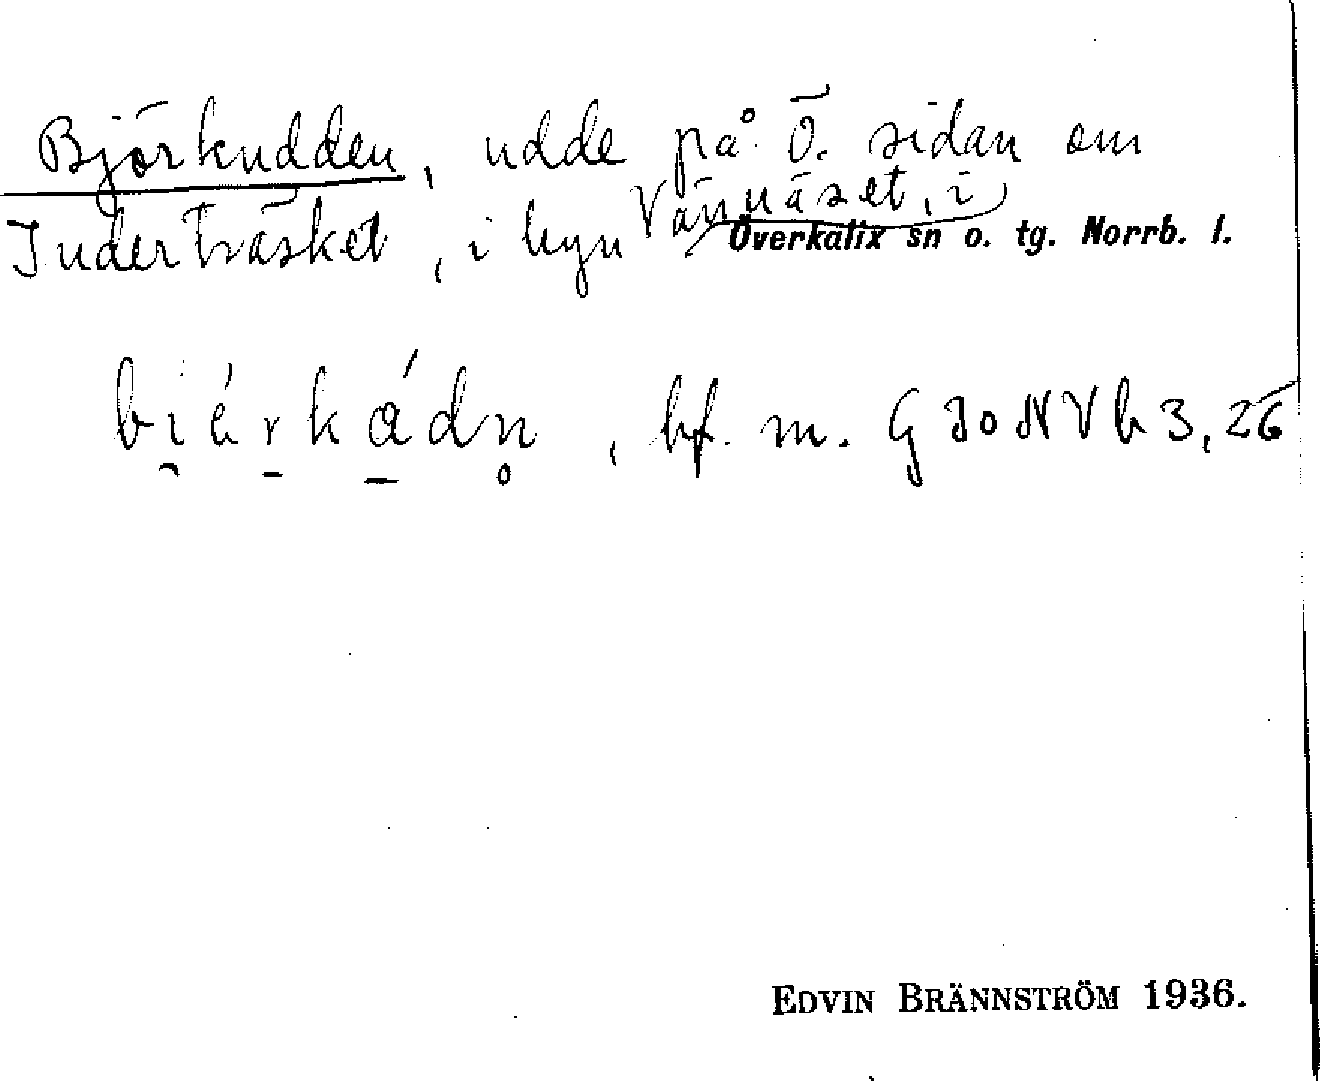 Björkudden, udde på Ö. sidan om
Inderträsket, i byn Vännäset, i
Överkalix sn o. tg. Norrb. l.
bi̯érkádn̥, bf. m. G 30 N V b 3, 26
EDVIN BRÄNNSTRÖM 1936.